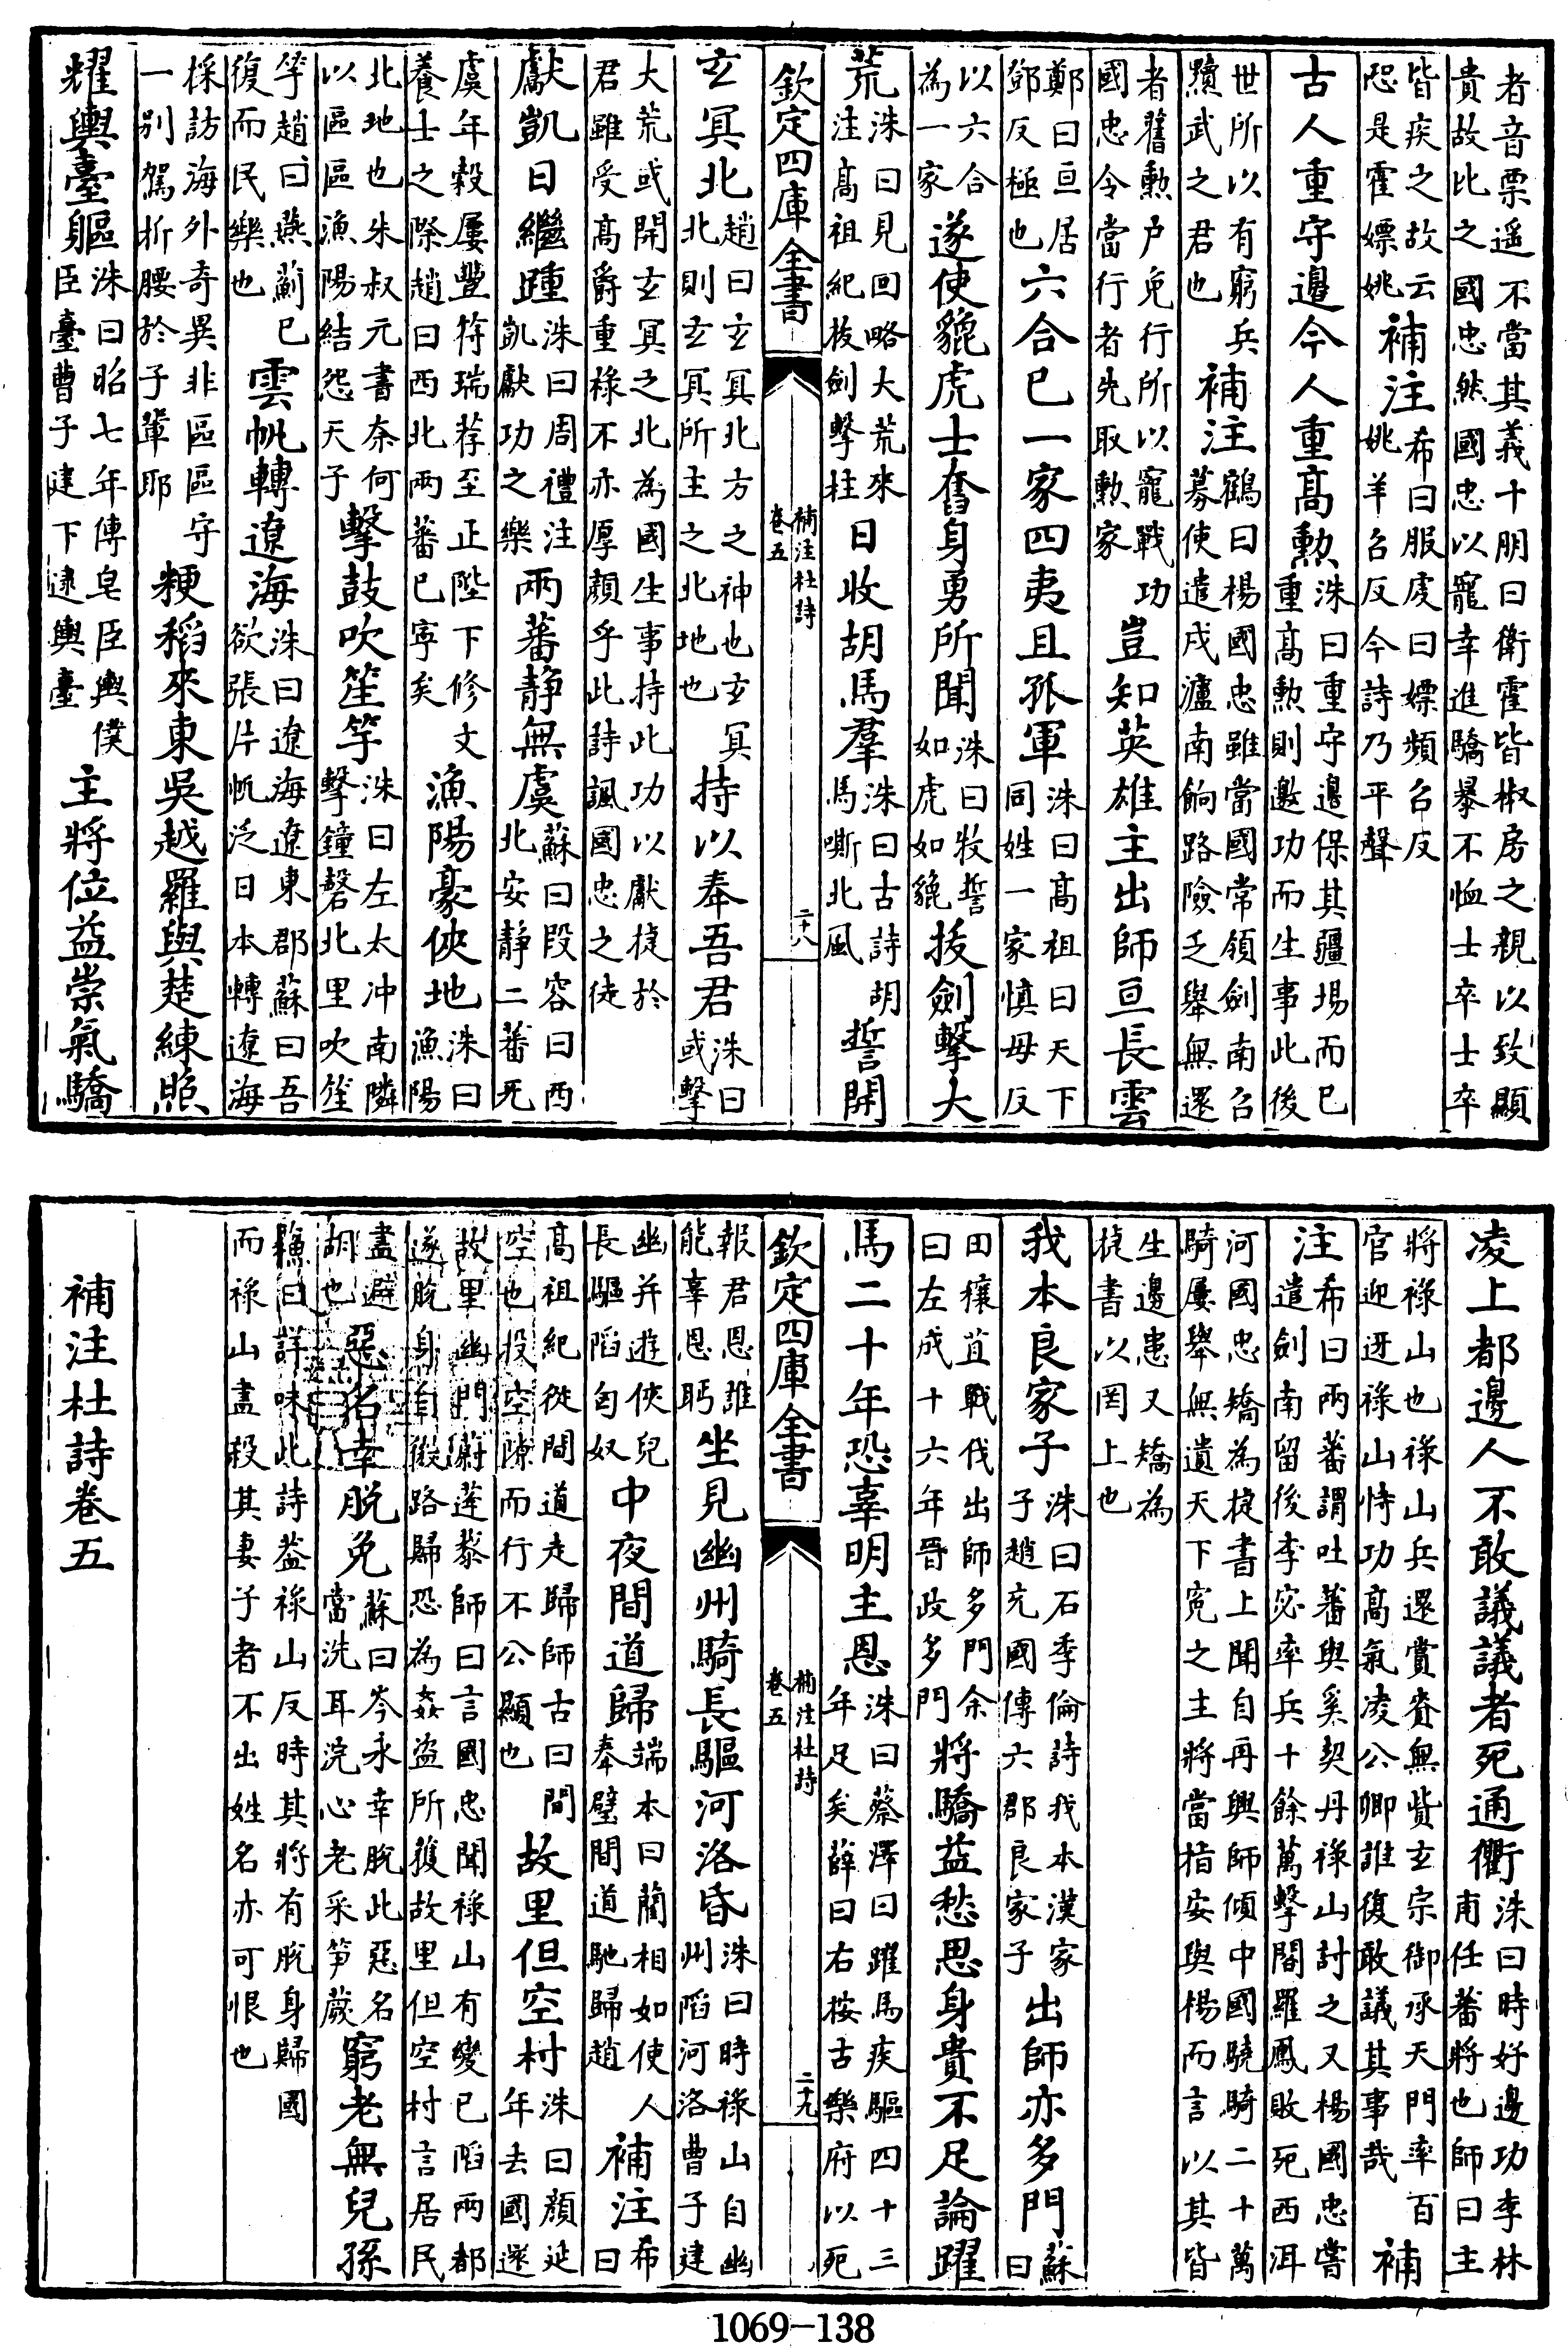 者音票遥不當其義十朋曰衛霍皆椒房之親以致顯
貴故比之國忠然國忠以寵幸進驕暴不恤士卒士卒
皆疾之故云恐是霍嫖姚補注希曰服虔曰嫖頻召反姚羊召反今詩乃平聲
古人重守邊今人重高勲洙曰重守邊保其疆場而已重高勲則邀功而生事此後
世所以有窮兵黷武之君也補注鶴曰楊國忠雖當國常領劍南召募使遣戍瀘南餉路險乏舉無還
者舊勲户免行所以寵戰功國忠令當行者先取勲家豈知英雄主出師亘長雲
鄭曰亘居鄧反極也六合已一家四夷且孤軍洙曰高祖曰天下同姓一家慎毋反
以六合為一家遂使貔虎士奮身勇所聞洙曰牧誓如虎如貔拔劍擊大
荒洙曰見回略大荒來注高祖紀拔劍擊柱日收胡馬羣洙曰古詩胡馬嘶北風誓開
欽定四庫全書 補注杜詩 卷五 二十八
玄冥北趙曰玄冥北方之神也玄冥北則玄冥所主之北地也持以奉吾君洙曰或擊
大荒或開玄冥之北為國生事持此功以獻捷於
君雖受高爵重祿不亦厚顏乎此詩諷國忠之徒
獻凱日繼踵洙曰周禮注凱獻功之樂兩蕃静無虞蘇曰段容曰西北安静二蕃无
虞年穀屢豐符瑞荐至正陛下修文養士之際趙曰西北兩蕃已寧矣漁陽豪俠地洙曰漁陽
北地也朱叔元書奈何以區區漁陽結怨天子擊鼓吹笙竽洙曰左太冲南隣擊鐘磬北里吹笙
竽趙曰燕薊已復而民樂也雲帆轉遼海洙曰遼海遼東郡蘇曰吾欲張片帆泛日本轉遼海
採訪海外奇異非區區守一别駕折腰於子輩耶粳稻來東吳越羅與楚練照
耀輿臺軀洙曰昭七年傳皂臣輿僕臣臺曹子建下逮輿臺主將位益崇氣驕
凌上都邊人不敢議議者死通衢洙曰時好邊功李林甫任蕃將也師曰主
將祿山也祿山兵還賞賚無貲玄宗御承天門率百官迎迓祿山恃功高氣凌公卿誰復敢議其事哉補
注希曰兩蕃謂吐蕃與奚契丹祿山討之又楊國忠嘗遣劍南留後李宓率兵十餘萬擊閤羅鳳敗死西洱
河國忠矯為捷書上聞自再興師傾中國驍騎二十萬
騎屢舉無遺天下寃之主將當指安與楊而言以其皆
生邊患又矯為捷書以罔上也
我本良家子洙曰石季倫詩我本漢家子趙充國傳六郡良家子出師亦多門蘇曰
田穰苴戰伐出師多門余曰左成十六年晉政多門將驕益愁思身貴不足論躍
馬二十年恐辜明主恩洙曰蔡澤曰躍馬疾驅四十三年足矣薛曰右按古樂府以死
欽定四庫全書 補注杜詩 卷五 二十九
報君恩誰能辜恩眄坐見幽州騎長驅河洛昏洙曰時祿山自幽州陷河洛曹子建
幽并遊俠兒長驅蹈匈奴中夜間道歸端本曰藺相如使人奉璧間道馳歸趙補注希曰
高祖紀從間道走歸師古曰間空也投空隙而行不公顯也故里但空村洙曰顏延年去國還
故里幽門蔚蓬藜師曰言國忠聞祿山有變已陷兩都
遂脫身自微路歸恐為姦盜所獲故里但空村言居民
盡避胡也惡名幸脫免蘇曰岑永幸脫此惡名當洗耳浣心老采笋蕨窮老無兒孫
蘇曰詳味此詩葢祿山反時其將有脫身歸國
而祿山盡殺其妻子者不出姓名亦可恨也
補注杜詩卷五
1069-138